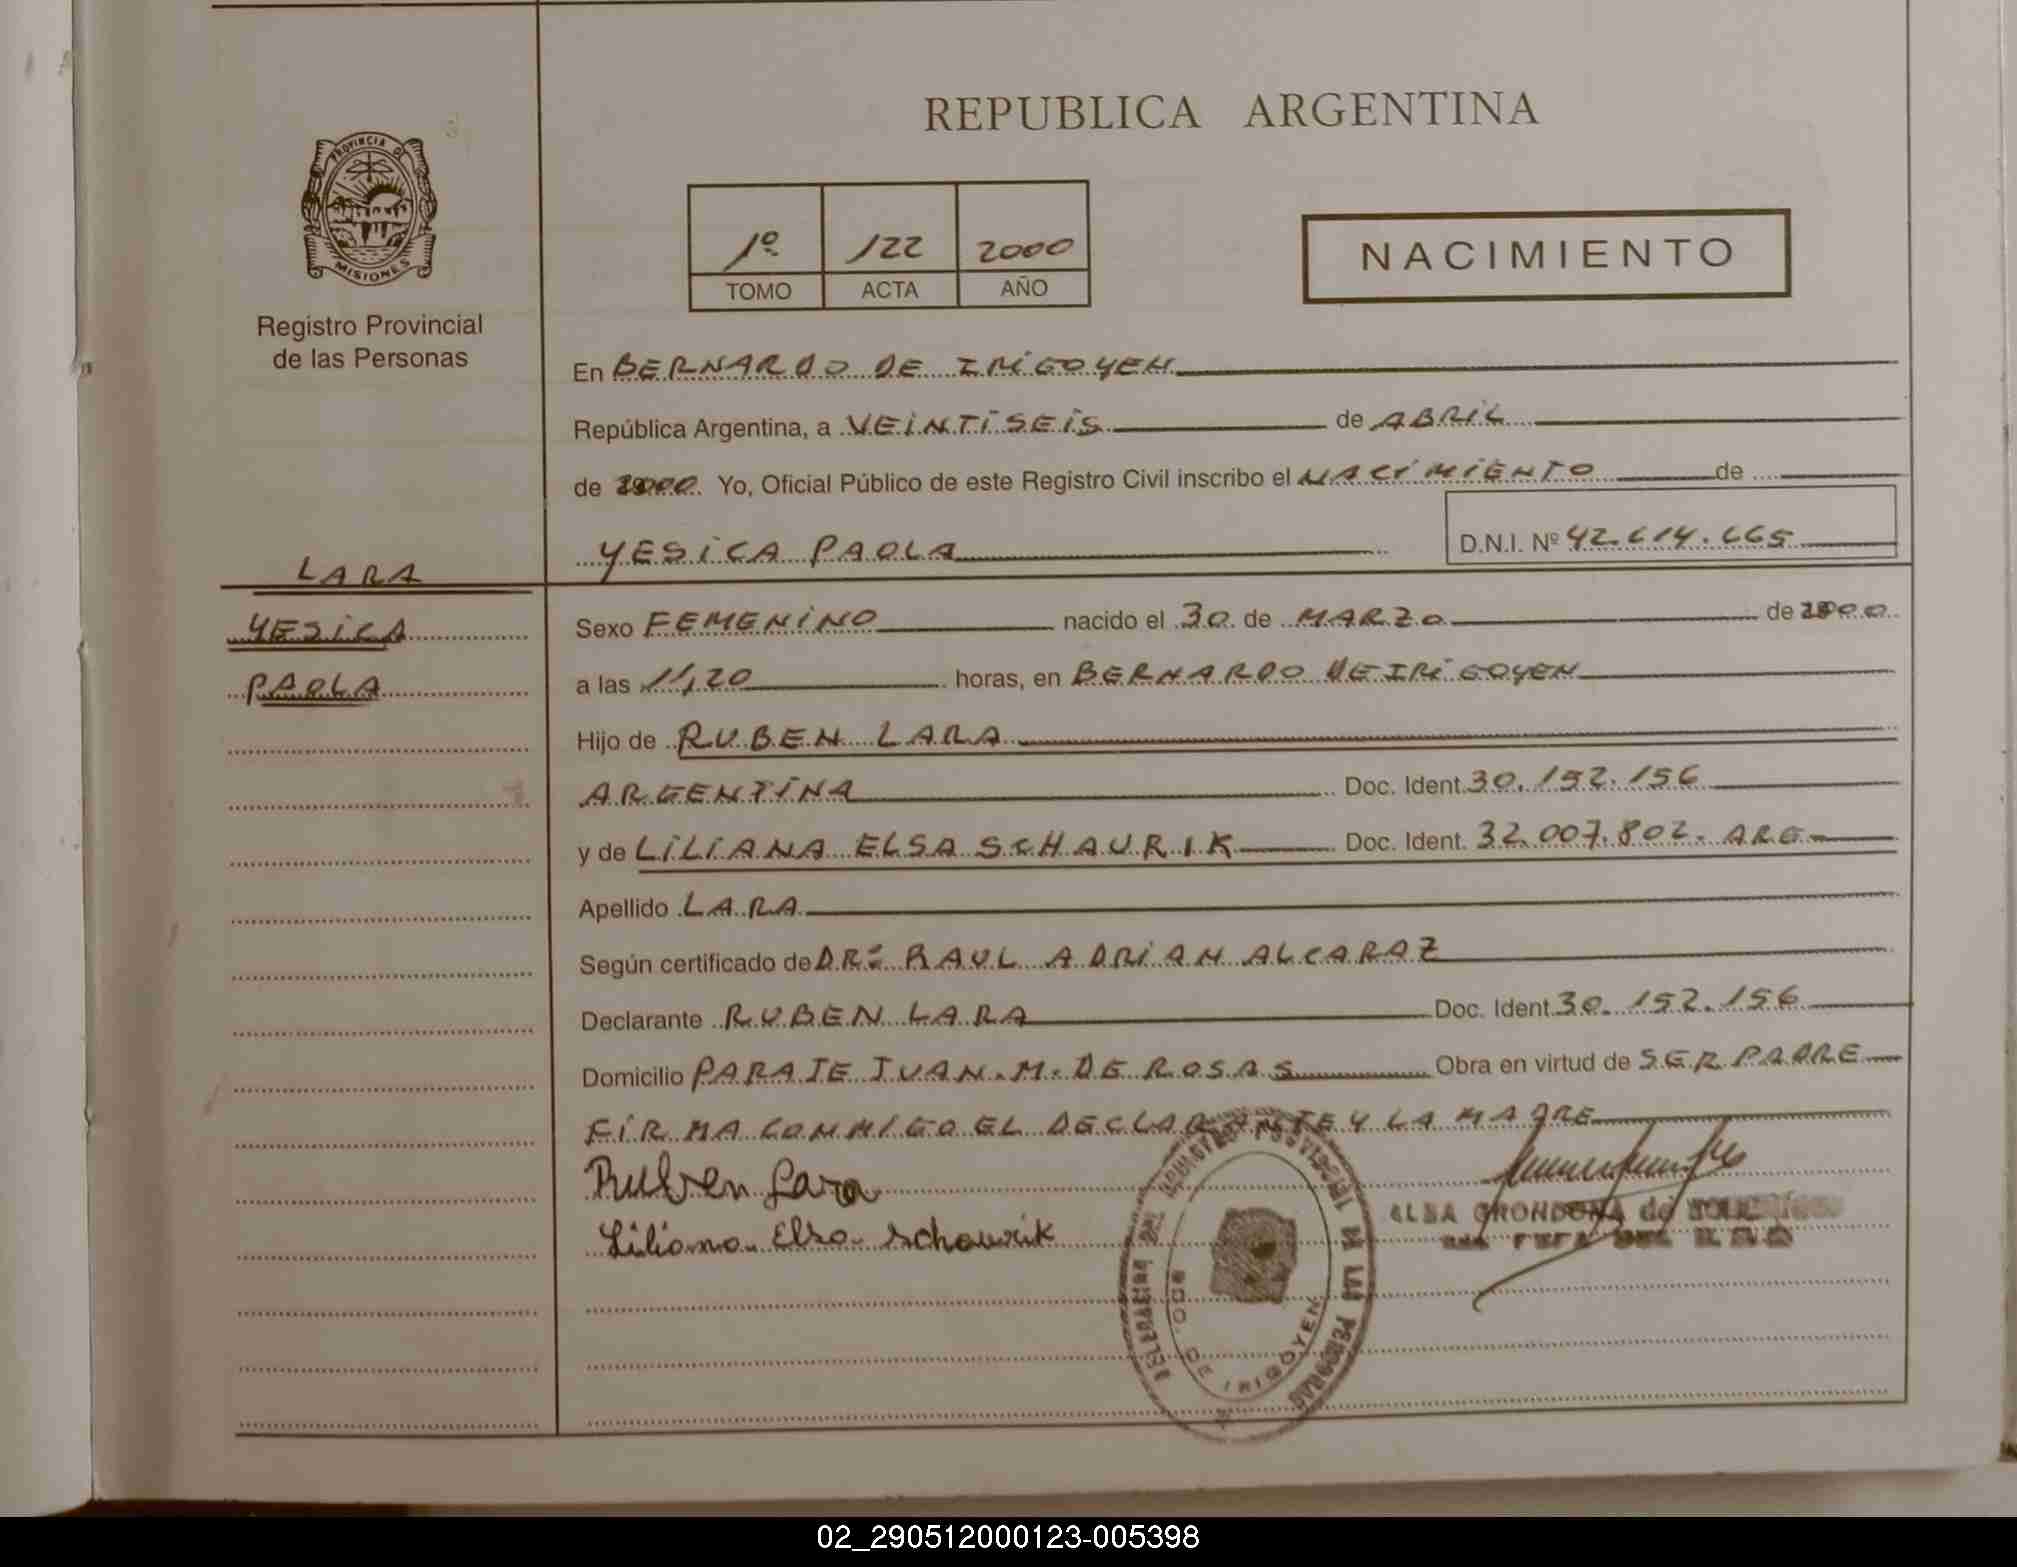 REPUBLICA ARGENTINA
PROVINCIA DE
MISIONES
Registro Provincial
de las Personas
1º 122 2000
TOMO ACTA AÑO
NACIMIENTO
En BERNARDO DE IRIGOYEN
República Argentina, a VEINTISEIS de ABRIL
de 2000. Yo, Oficial Público de este Registro Civil inscribo el NACIMIENTO de
YESICA PAOLA D.N.I. Nº 42.614.665
LARA
YESICA
PAOLA
Sexo FEMENINO nacido el 30 de MARZO de 2000
a las 11,20 horas, en BERNARDO DE IRIGOYEN
Hijo de RUBEN LARA
ARGENTINA Doc. Ident. 30.152.156
y de LILIANA ELSA SCHAURIK Doc. Ident. 32.007.802. ARG
Apellido LARA
Según certificado de DR: RAUL ADRIAN ALCARAZ
Declarante RUBEN LARA Doc. Ident. 30.152.156
Domicilio PARAJE JUAN.M.DE ROSAS Obra en virtud de SER PADRE
FIRMA CONMIGO EL DECLARANTE Y LA MADRE
Ruben Lara
Liliana Elsa Schaurik
ALBA GRONDONA de
DE LAS PERSONAS
BDO. DE IRIGOYEN
02_290512000123-005398